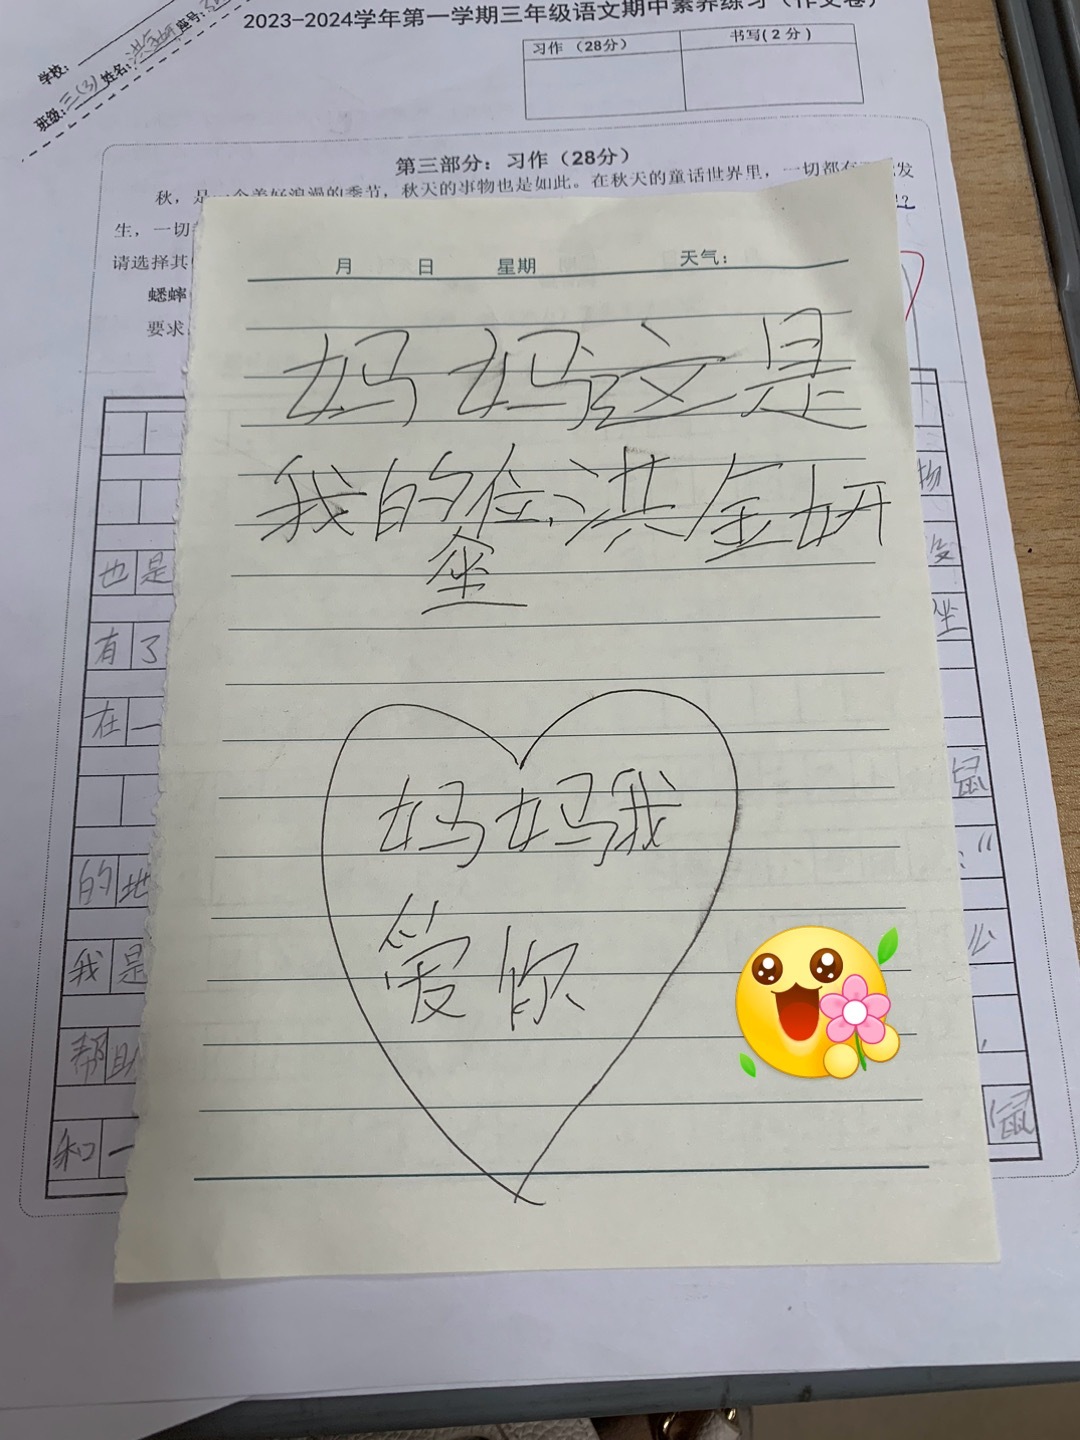 2023-2024学年第一学期三年级语文期中素养练习（作文卷）
学校：
班级：三(3) 姓名：洪金妍 座号：
习作（28分） 书写（2分）
第三部分：习作（28分）
秋，是一个美好浪漫的季节，秋天的事物也是如此。在秋天的童话世界里，一切都有 发
生，一切
请选择其
蟋蟀
要求
月 日 星期 天气：
妈妈这是
我的位,洪金妍
座
妈妈我
爱你
物
也是
有了 坐
在一
鼠
的地 ：“
我是
帮助
和一 鼠